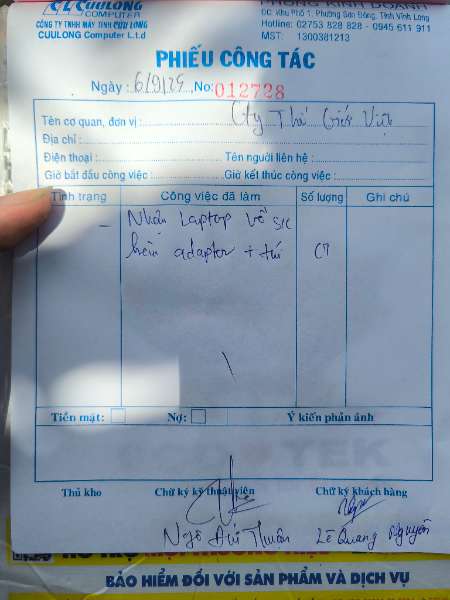 CUULONG
COMPUTER
CÔNG TY TNHH MÁY TÍNH CỬU LONG
CUULONG Computer L.t.d
PHÒNG KINH DOANH
ĐC: Khu Phố 1, Phường Sân Đông, Tỉnh Vĩnh Long
Hotline: 02753 828 828 - 0945 611 911
MST: 1300381213
PHIẾU CÔNG TÁC
Ngày: 6/9/25 No: 012728
Tên cơ quan, đơn vị: Cty Thế Giới Việt
Địa chỉ:
Điện thoại: Tên người liên hệ:
Giờ bắt đầu công việc: Giờ kết thúc công việc:
Tình trạng Công việc đã làm Số lượng Ghi chú
- Nhận Laptop về s/c
kèm adapter + túi
Tiền mặt: Nợ: Ý kiến phản ánh
Thủ kho Chữ ký kỹ thuật viên Chữ ký khách hàng
Ngô Đức Thuận Lê Quang Nguyên
BẢO HIỂM ĐỐI VỚI SẢN PHẨM VÀ DỊCH VỤ